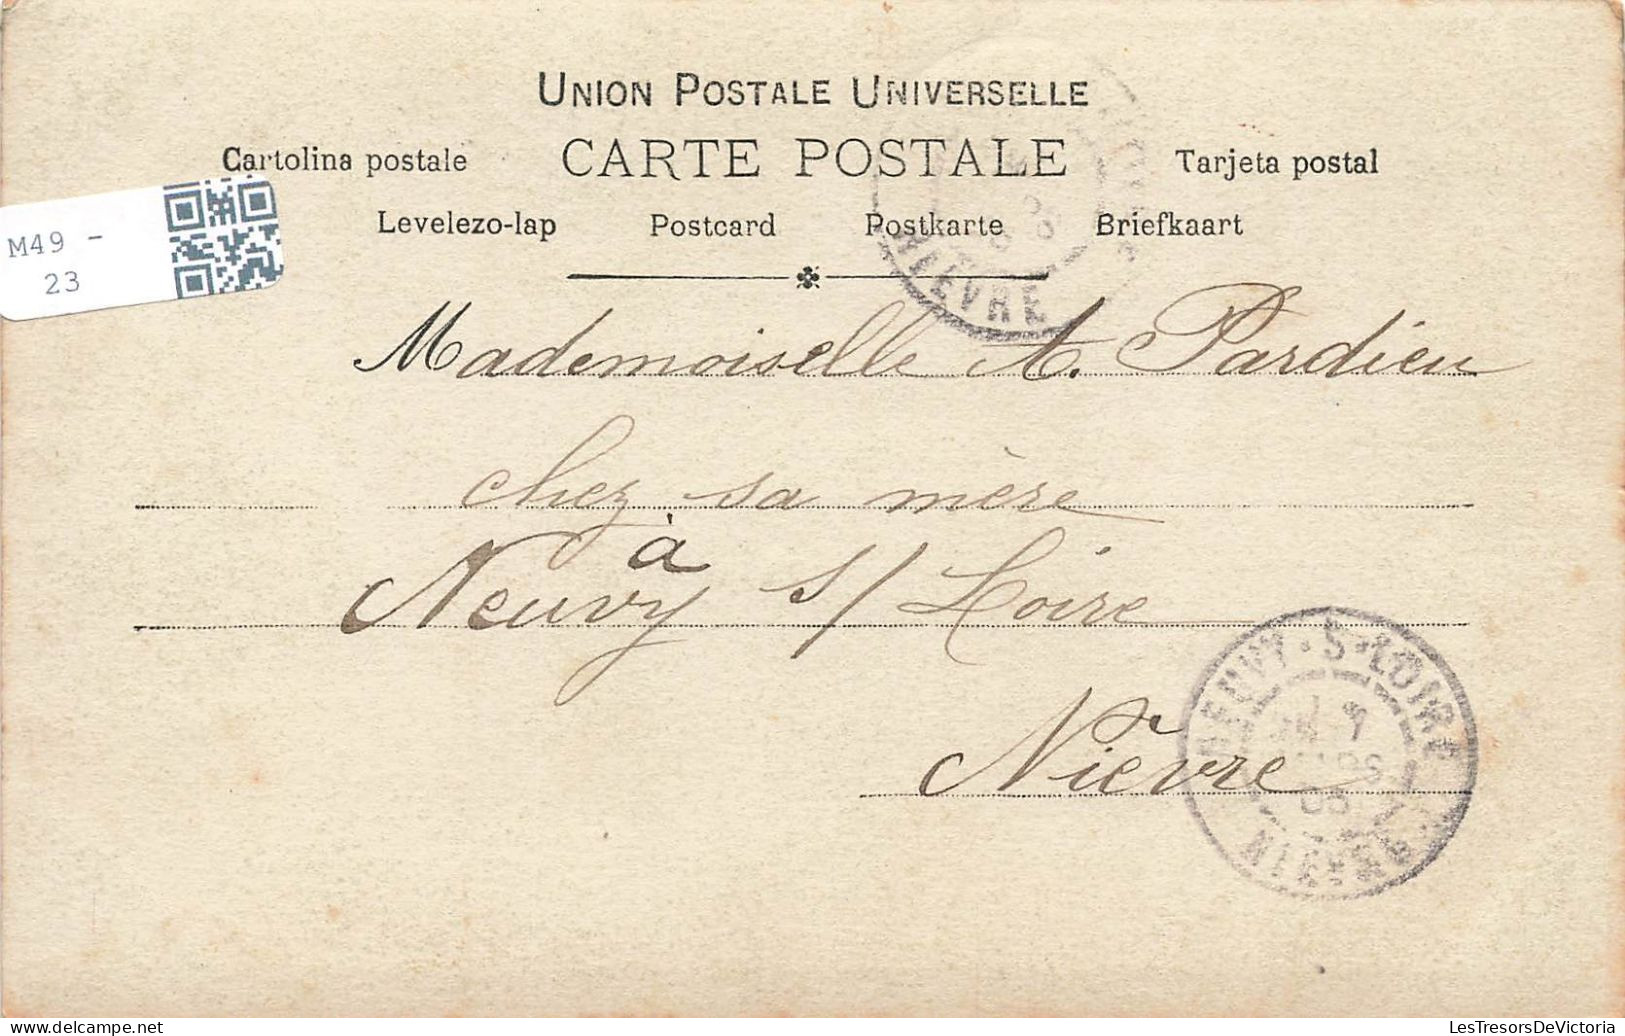 UNION POSTALE UNIVERSELLE
Cartolina postale CARTE POSTALE Tarjeta postal
Levelezo-lap Postcard Postkarte Briefkaart
M49 -
23
NIEVRE
Mademoiselle A. Pardieu
chez sa mère
à
Neuvy s/ Loire
Nièvre
NEUVY-S-LOIRE
NIEVRE
delcampe.net
LesTresorsDeVictoria